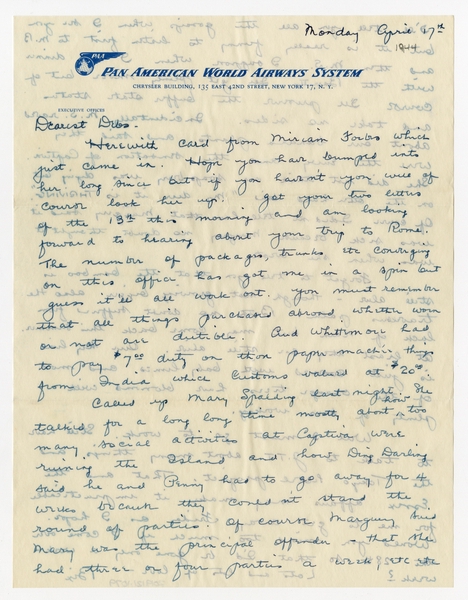 Monday April 17th
1944
PAA
PAN AMERICAN WORLD AIRWAYS SYSTEM
CHRYSLER BUILDING, 135 EAST 42ND STREET, NEW YORK 17, N. Y.
EXECUTIVE OFFICES
Dearest Debs.
Herewith card from Miriam Forbes which
just came in. Hope you have bumped into
her long since but if you haven't you will of
course look her up. Got your two letters
of the 13th this morning and am looking
forward to hearing about your trip to Rome.
The number of packages, trunks etc converging
on this office has got me in a spin but
guess it'll all work out. You must remember
that all things purchased abroad, whether worn
or not are dutible. Aud Whittimore had
to pay $7.00 duty on them paper machie things
from India which Customs valued at $20.00.
Called up Mary Spalding last night. She
talked for a long long time mostly about how too
many social activities at Captiva were
ruining the Island and how Ding Darling
said he and Penny had to go away for 4
weeks because they couldn't stand the
round of parties. Of course Marguery said
Mary was the principal offender - that she
had three or four parties a week etc etc